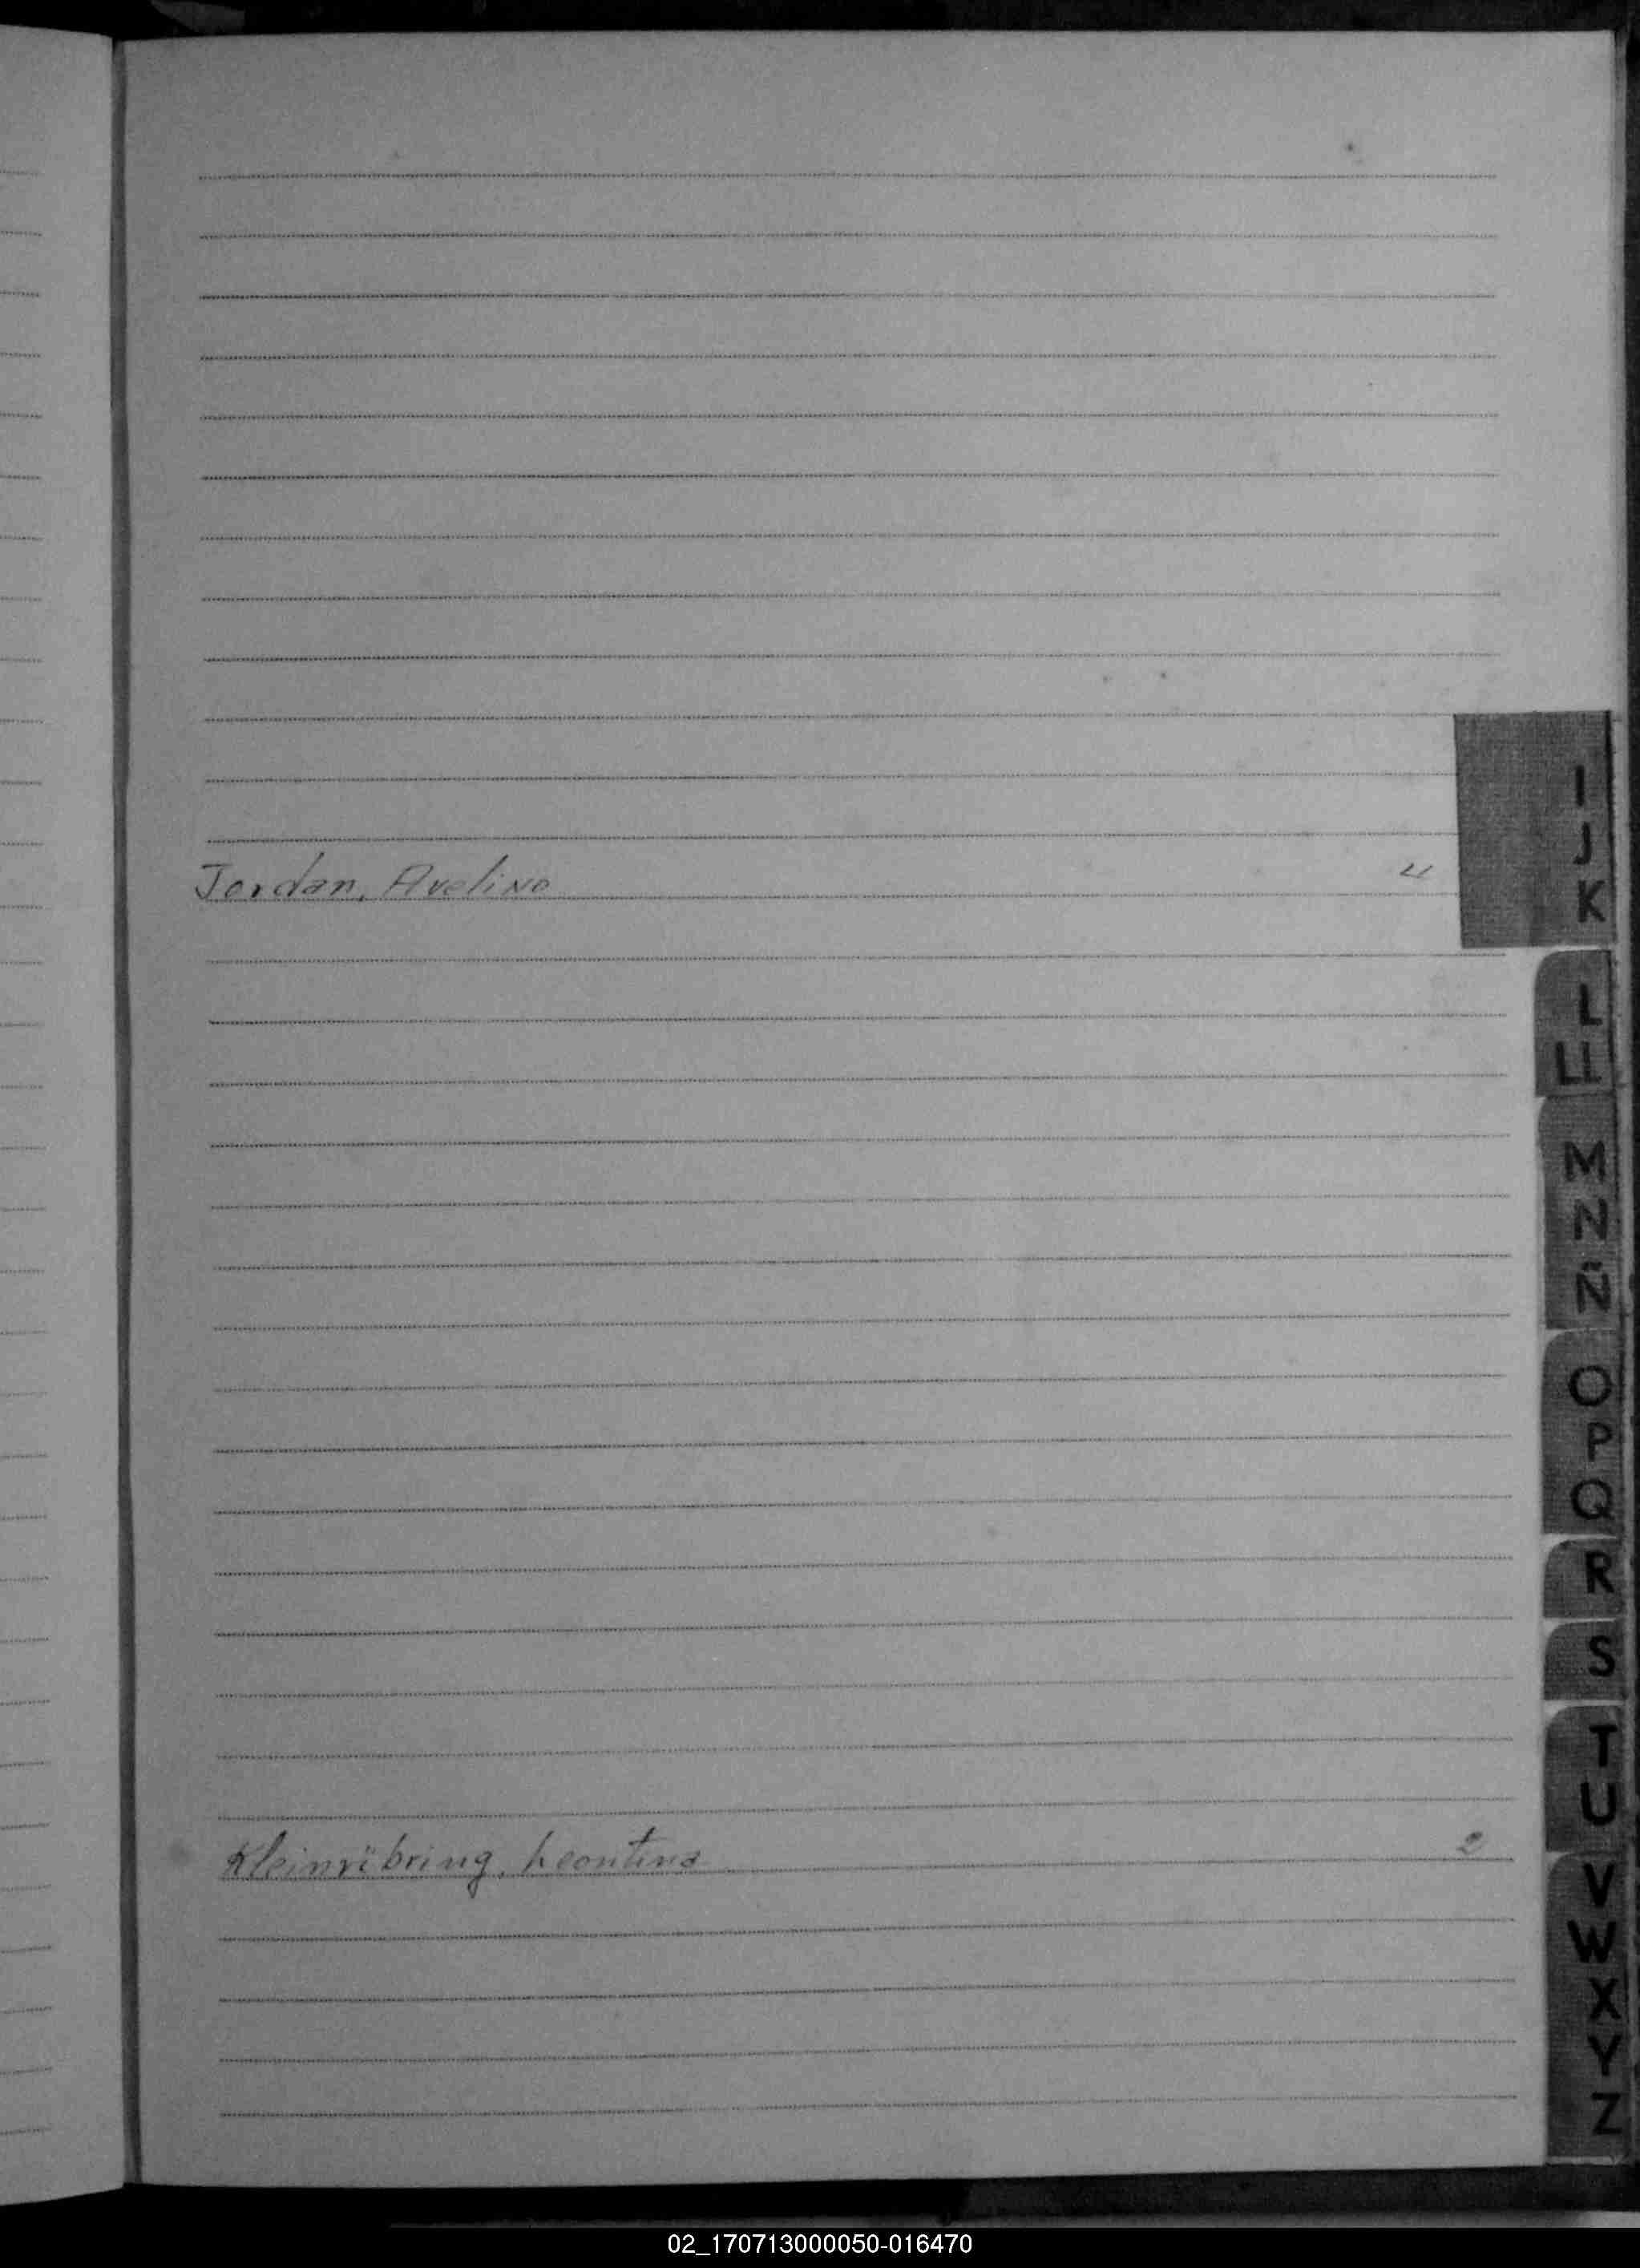 Jordan, Avelino 4
Kleinröbring, Leontina 2
I
J
K
L
LL
M
N
Ñ
O
P
Q
R
S
T
U
V
W
X
Y
Z
02_170713000050-016470